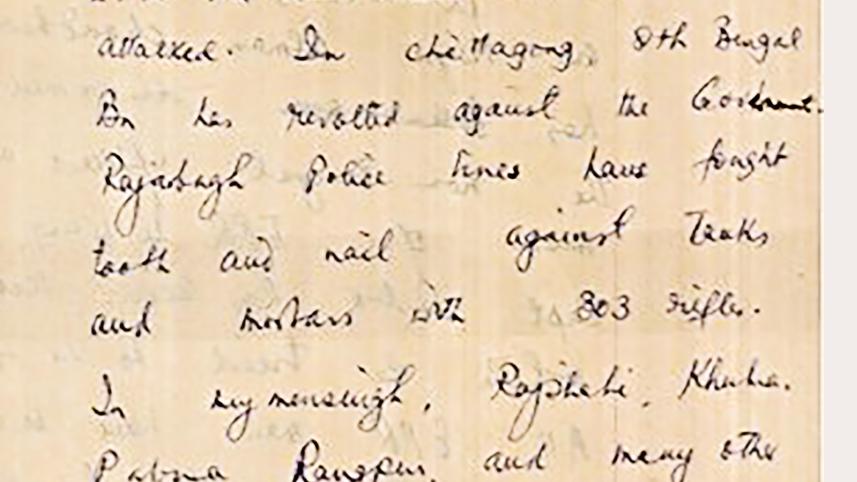 attacked. In chittagong, 8th Bengal
Bn has revolted against the Government.
Rajarbagh Police lines have fought
tooth and nail against Tanks
and mortars with 303 rifles.
In mymensingh, Rajshahi, Khulna,
Pabna Rangpur, and many other